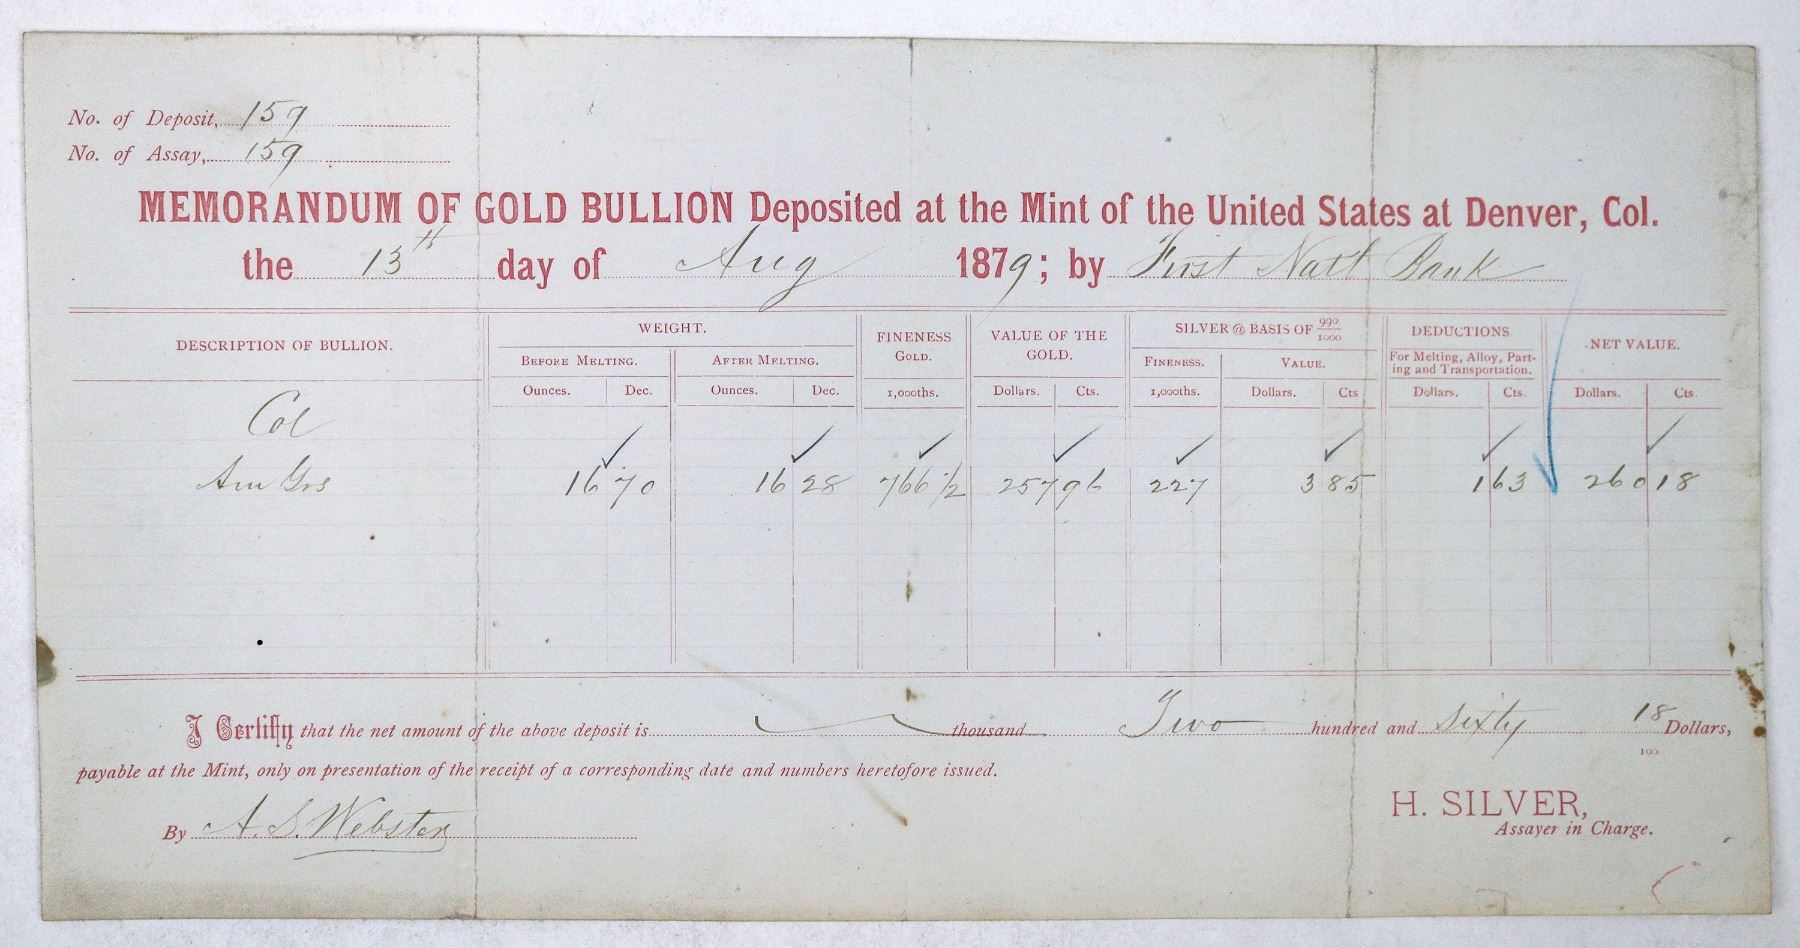 No. of Deposit, 159
No. of Assay, 159
MEMORANDUM OF GOLD BULLION Deposited at the Mint of the United States at Denver, Col.
the 13th day of Aug 1879; by First Natl Bank
DESCRIPTION OF BULLION. WEIGHT. FINENESS GOLD. VALUE OF THE GOLD. SILVER @ BASIS OF 990/1000 DEDUCTIONS NET VALUE.
BEFORE MELTING. AFTER MELTING. FINENESS. VALUE. For Melting, Alloy, Parting and Transportation.
Ounces. Dec. Ounces. Dec. 1,000ths. Dollars. Cts. 1,000ths. Dollars. Cts Dollars. Cts. Dollars. Cts.
Col
16 70 16 28 766 1/2 257 96 227 3 85 1 63 260 18
I Certify that the net amount of the above deposit is thousand Two hundred and sixty 18/100 Dollars,
payable at the Mint, only on presentation of the receipt of a corresponding date and numbers heretofore issued.
By A. S. Webster
H. SILVER,
Assayer in Charge.